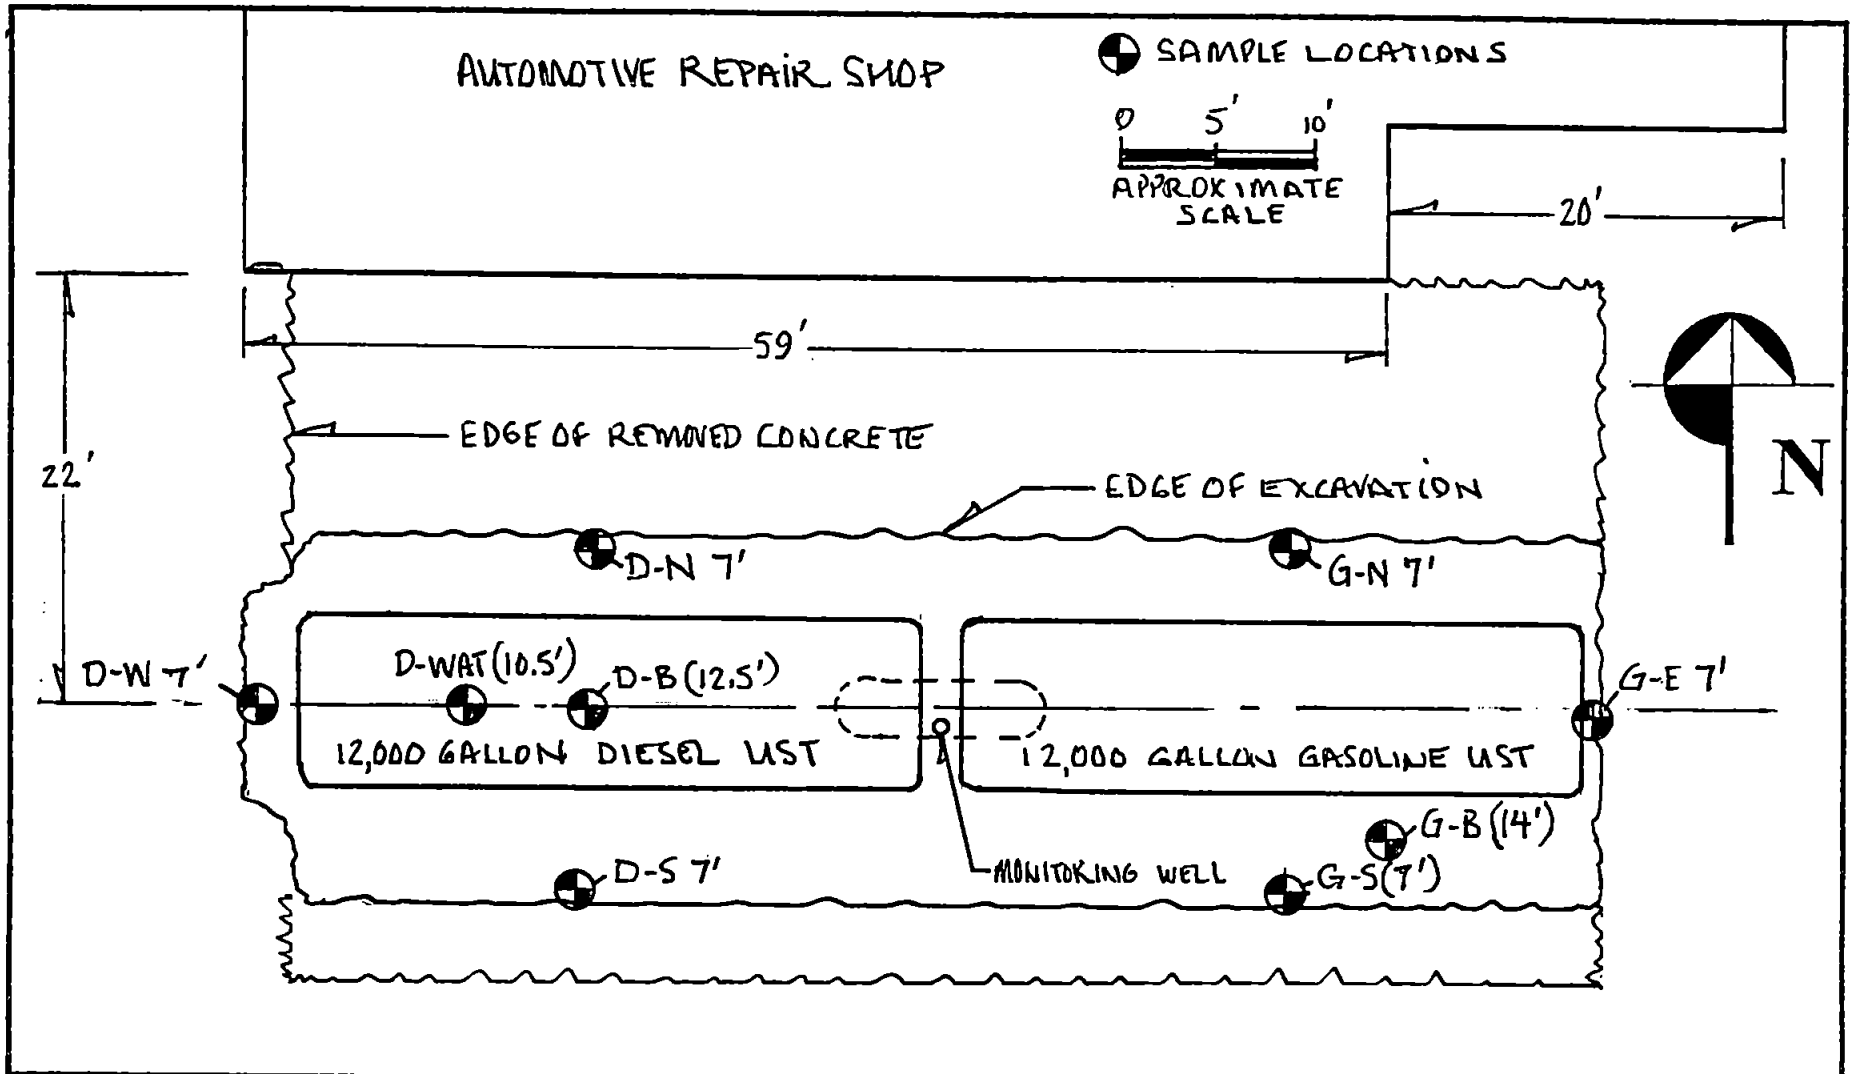 AUTOMOTIVE REPAIR SHOP
SAMPLE LOCATIONS
0 5' 10'
APPROXIMATE
SCALE
20'
59'
22'
EDGE OF REMOVED CONCRETE
EDGE OF EXCAVATION
N
D-N 7'
G-N 7'
D-W 7'
D-WAT (10.5')
D-B (12.5')
G-E 7'
12,000 GALLON DIESEL UST
12,000 GALLON GASOLINE UST
G-B (14')
D-S 7'
MONITORING WELL
G-S (7')